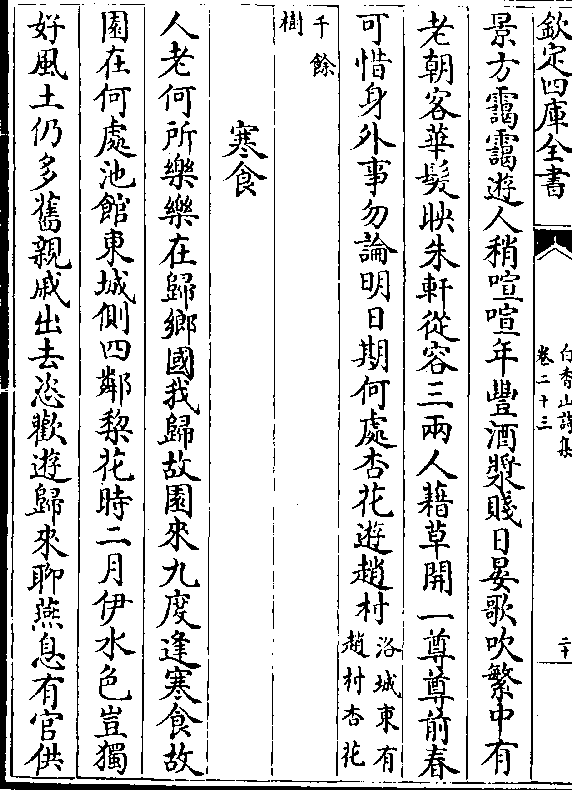 欽定四庫全書
白香山詩集
卷二十三
二十
景方靄靄遊人稍喧喧年豐酒漿賤日晏歌吹繁中有
老朝客華髮映朱軒從容三兩人藉草開一尊尊前春
可惜身外事勿論明日期何處杏花遊趙村洛城東有趙村杏花
千餘樹
寒食
人老何所樂樂在歸鄉國我歸故園來九度逢寒食故
園在何處池館東城側四鄰梨花時二月伊水色豈獨
好風土仍多舊親戚出去恣歡遊歸來聊燕息有官供